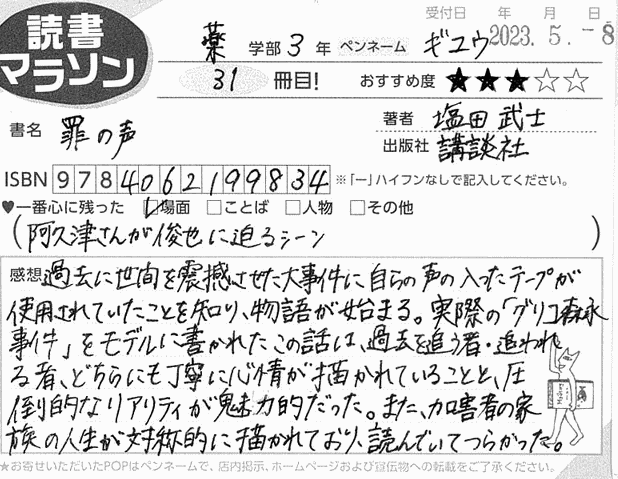 読書
マラソン
受付日 年 月 日
2023. 5. -8
薬 学部 3 年 ペンネーム ギユウ
31 冊目! おすすめ度 ★★★☆☆
書名 罪の声
著者 塩田 武士
出版社 講談社
ISBN 9784062199834 ※「ー」ハイフンなしで記入してください。
♥一番心に残った ☑場面 □ことば □人物 □その他
(阿久津さんが俊也に迫るシーン)
感想 過去に世間を震撼させた大事件に自らの声の入ったテープが
使用されていたことを知り、物語が始まる。実際の「グリコ森永
事件」をモデルに書かれたこの話は、過去を追う者・追われ
る者、どちらにも丁寧に心情が描かれていることと、圧
倒的なリアリティが魅力的だった。また、加害者の家
族の人生が対称的に描かれており、読んでいてつらかった。
★お寄せいただいたPOPはペンネームで、店内掲示、ホームページおよび宣伝物への転載をご了承ください。